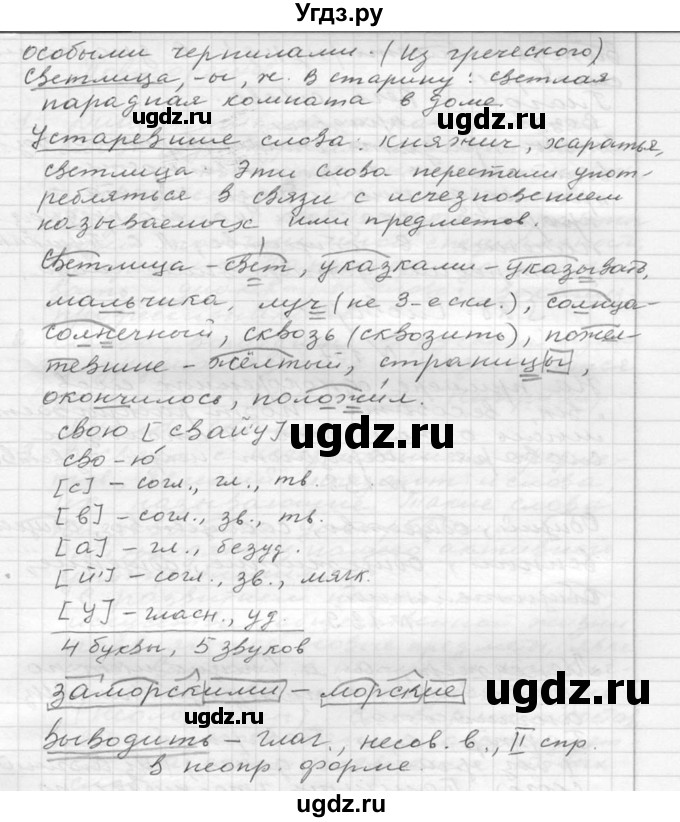 Угдз.ру
особыми чернилами. (Из греческого)
Светлица, -ы, ж. В старину: светлая
парадная комната в доме.
ugdz.ru ugdz.ru
Устаревшие слова: княжич, харатья,
светлица. Эти слова перестали упот-
ребляться в связи с исчезновением
называемых ими предметов.
ugdz.ru
Светлица - свет, указками - указывать,
мальчика, луч (не 3-е скл.), солнца-
солнечный, сквозь (сквозить), пожел-
тевшие - жёлтый, страницы,
окончилось, положил.
свою [свай'у] ugdz.ru
сво-ю
[с] - согл., гл., тв.
[в] - согл., зв., тв.
[а] - гл., безуд.
[й'] - согл., зв., мягк.
[у] - гласн., уд.
4 буквы, 5 звуков
ugdz.ru ugdz.ru
заморскими - морские
ugdz.ru ugdz.ru
Выводить - глаг., несов. в., II спр.
в неопр. форме.
ugdz.ru